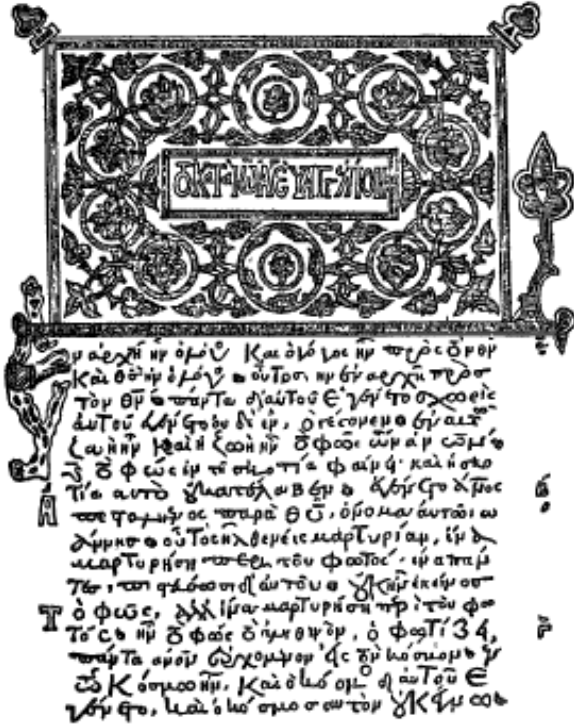 Ἐν ἀρχῆ ἦν ὁ λόγος Καὶ ὁ λόγος ἦν πρὸς τὸν θν
Καὶ θς ἦν ὁ λόγος· οὗτος ἦν ἐν ἀρχῆ πρὸς
τὸν θν· πάντα δι αὐτοῦ ἐγένετο χωρὶς
αὐτοῦ ἐγένετο οὐδὲ ἕν, ὃ γέγονεν· ἐν αὐτῶ
ζωὴ ἦν καὶ ἡ ζωὴ ἦν τὸ φῶς τῶν ἀνων
τὸ φῶς ἐν τῆ σκοτία φαίνει· καὶ ἡ σκο
τία αὐτὸ οὐ κατέλαβεν· ἐγένετο ἄνος
ἀπεσταλμένος παρὰ θυ, ὄνομα αὐτῶ ἰω
άννης· οὗτος ἦλθεν εἰς μαρτυρίαν, ἵνα
μαρτυρήση περὶ τοῦ φωτός· ἵνα πάν
τες, πιστεύσωσι δι αὐτοῦ· οὐκ ἦν ἐκεῖνος
τὸ φῶς, ἀλλ ἵνα μαρτυρήση περὶ τοῦ φω
τός· ἦν τὸ φῶς τὸ ἀληθινὸν, ὃ φωτίζει,
πάντα ἄνον ἐρχόμενον εἰς τὸν κόσμον· ἐν
τῶ Κόσμω ἦν, Καὶ ὁ κόσμος δι αὐτοῦ Ἐ
γένετο, καὶ ὁ κόσμος αὐτὸν οὐκ ἔγνω·